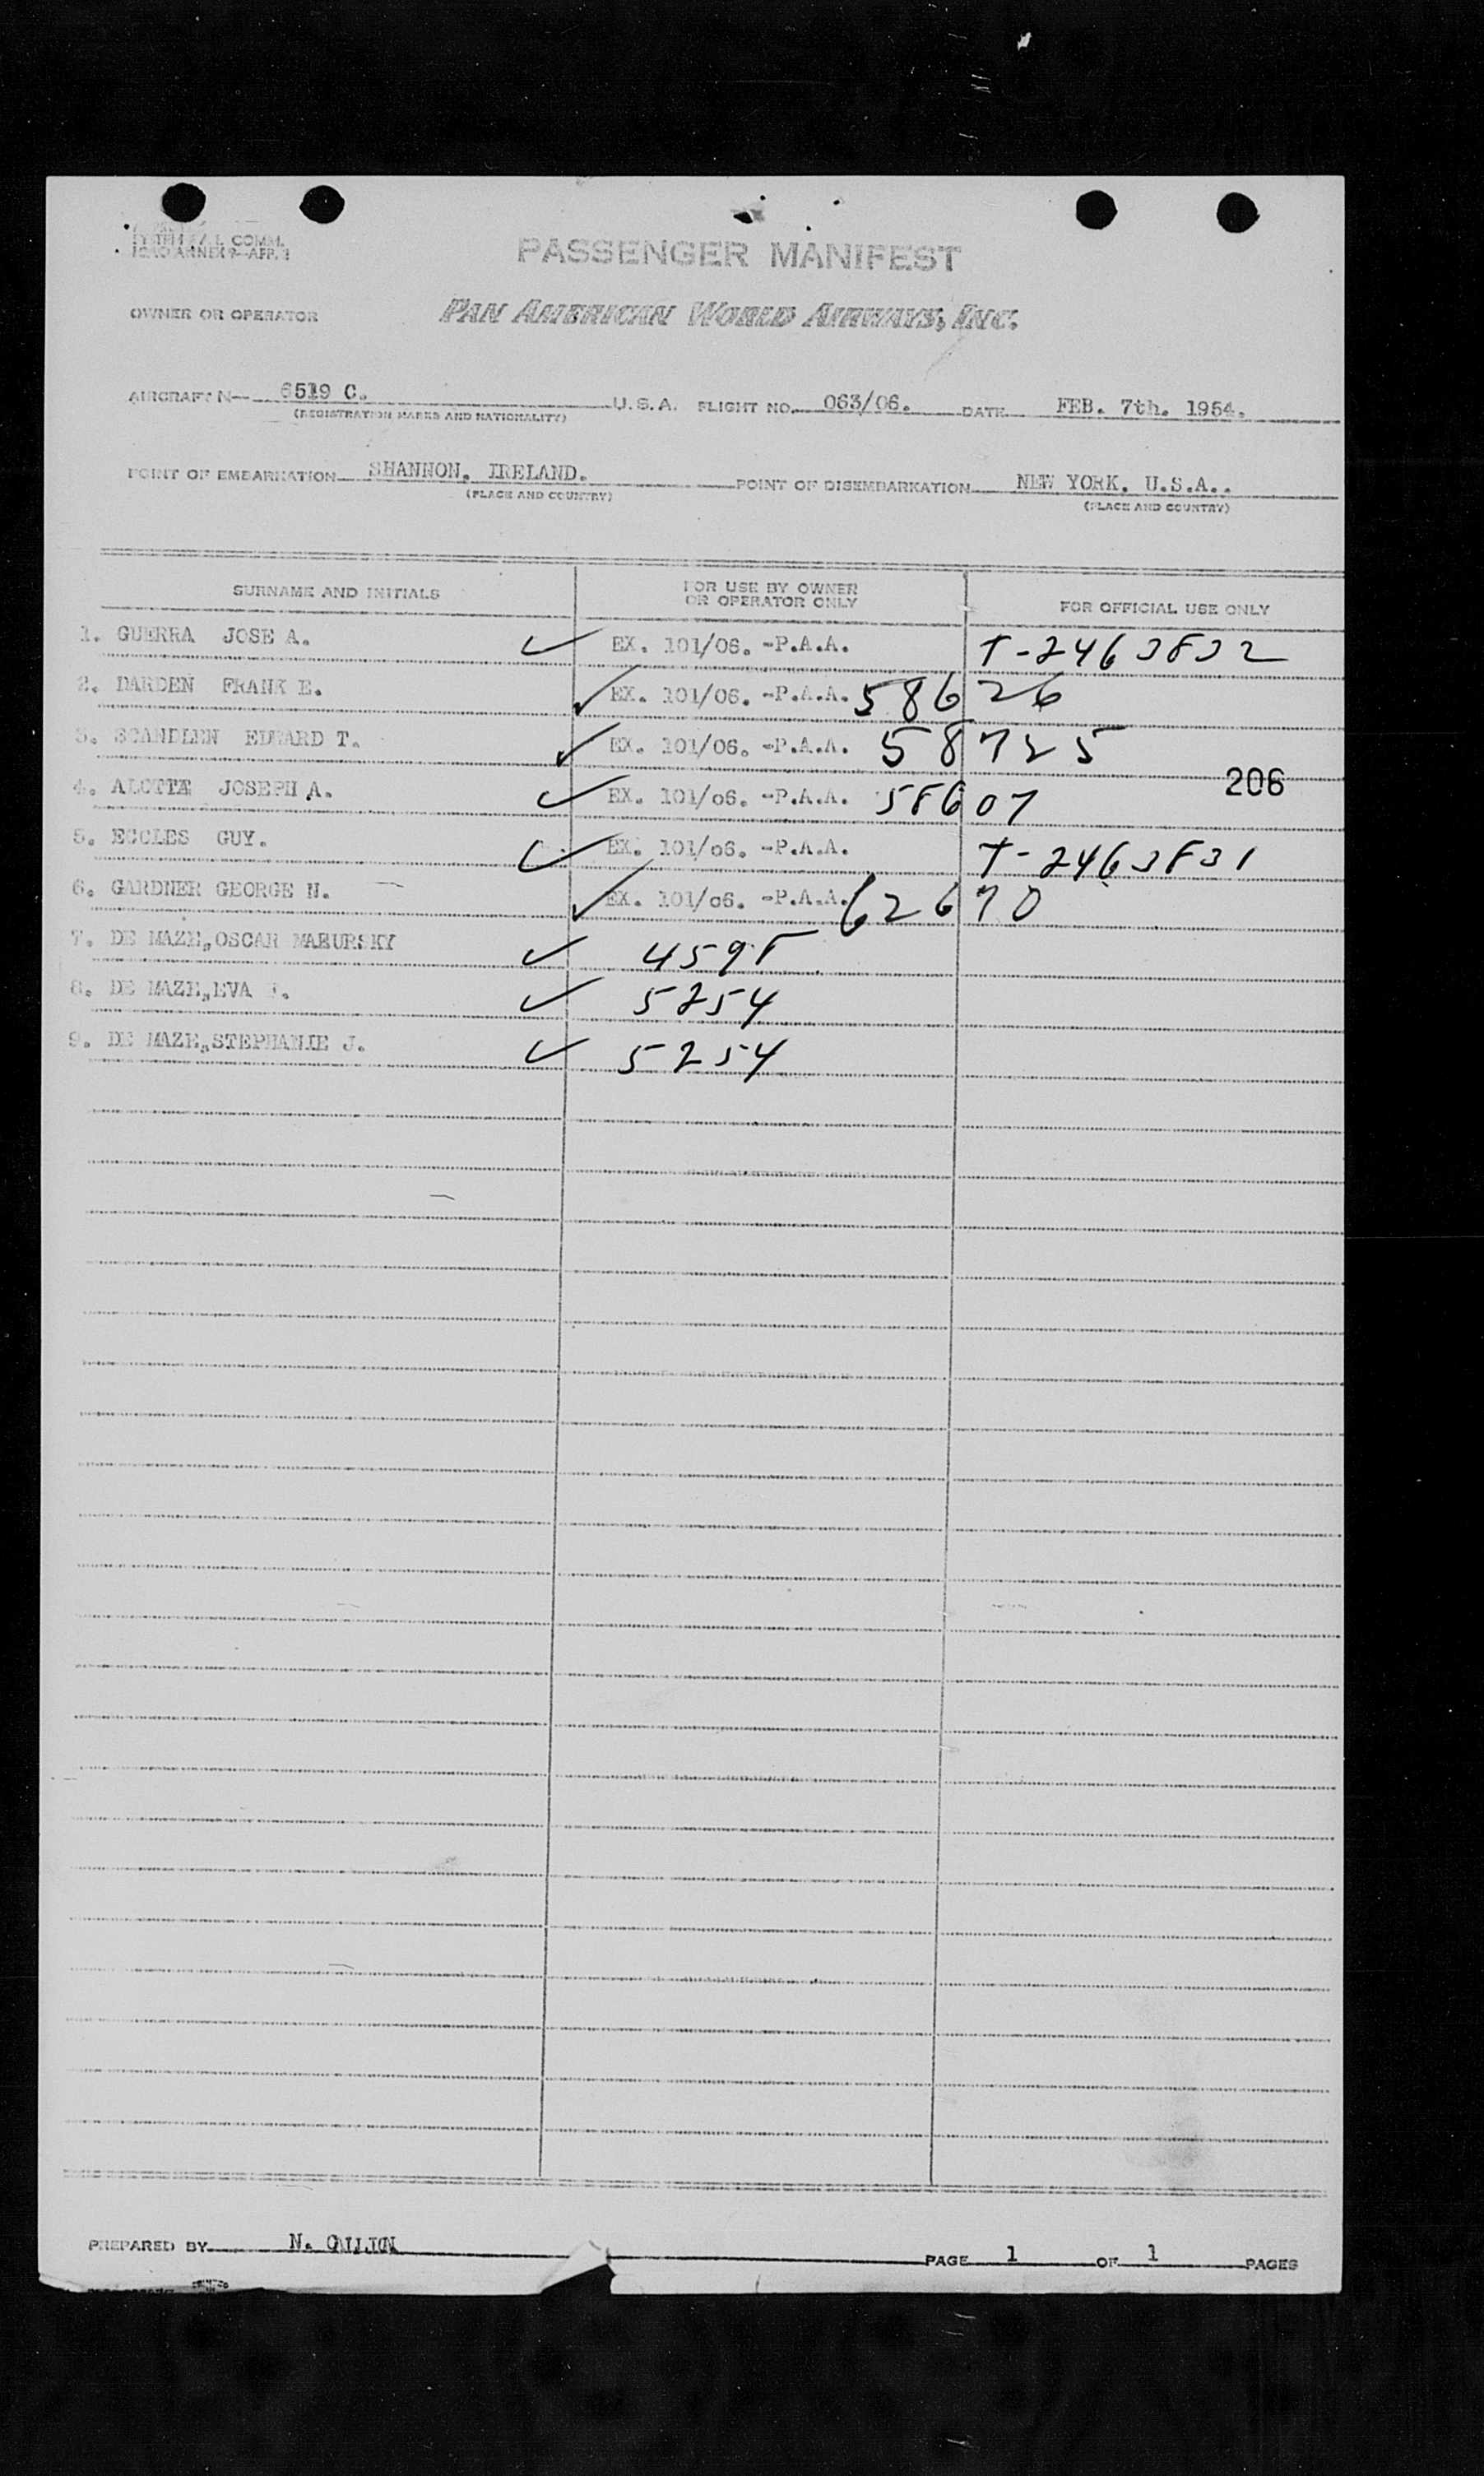 PASSENGER MANIFEST
OWNER OR OPERATOR PAN AMERICAN WORLD AIRWAYS, INC.
AIRCRAFT N— 6519 C. U.S.A. FLIGHT NO. 063/06. DATE FEB. 7th. 1954.
(REGISTRATION MARKS AND NATIONALITY)
POINT OF EMBARKATION SHANNON, IRELAND. POINT OF DISEMBARKATION NEW YORK, U.S.A..
(PLACE AND COUNTRY) (PLACE AND COUNTRY)
SURNAME AND INITIALS FOR USE BY OWNER OR OPERATOR ONLY FOR OFFICIAL USE ONLY
1. GUERRA JOSE A. ✓ EX. 101/06. -P.A.A. T-2463832
2. DARDEN FRANK E. ✓ EX. 101/06. -P.A.A. 58626
3. SCANDLEN EDWARD T. ✓ EX. 101/06. -P.A.A. 58725
4. JOSEPH A. ✓ EX. 101/06. -P.A.A. 58607 206
5. ECCLES GUY. ✓ EX. 101/06. -P.A.A. T-2463831
6. GARDNER GEORGE N. ✓ EX. 101/06. -P.A.A. 62670
7. DE MAZE,,OSCAR ✓ 4598
8. DE MAZE,,EVA ✓ 5254
9. DE MAZE,,STEPHANIE J. ✓ 5254
PREPARED BY N. PAGE 1 OF 1 PAGES